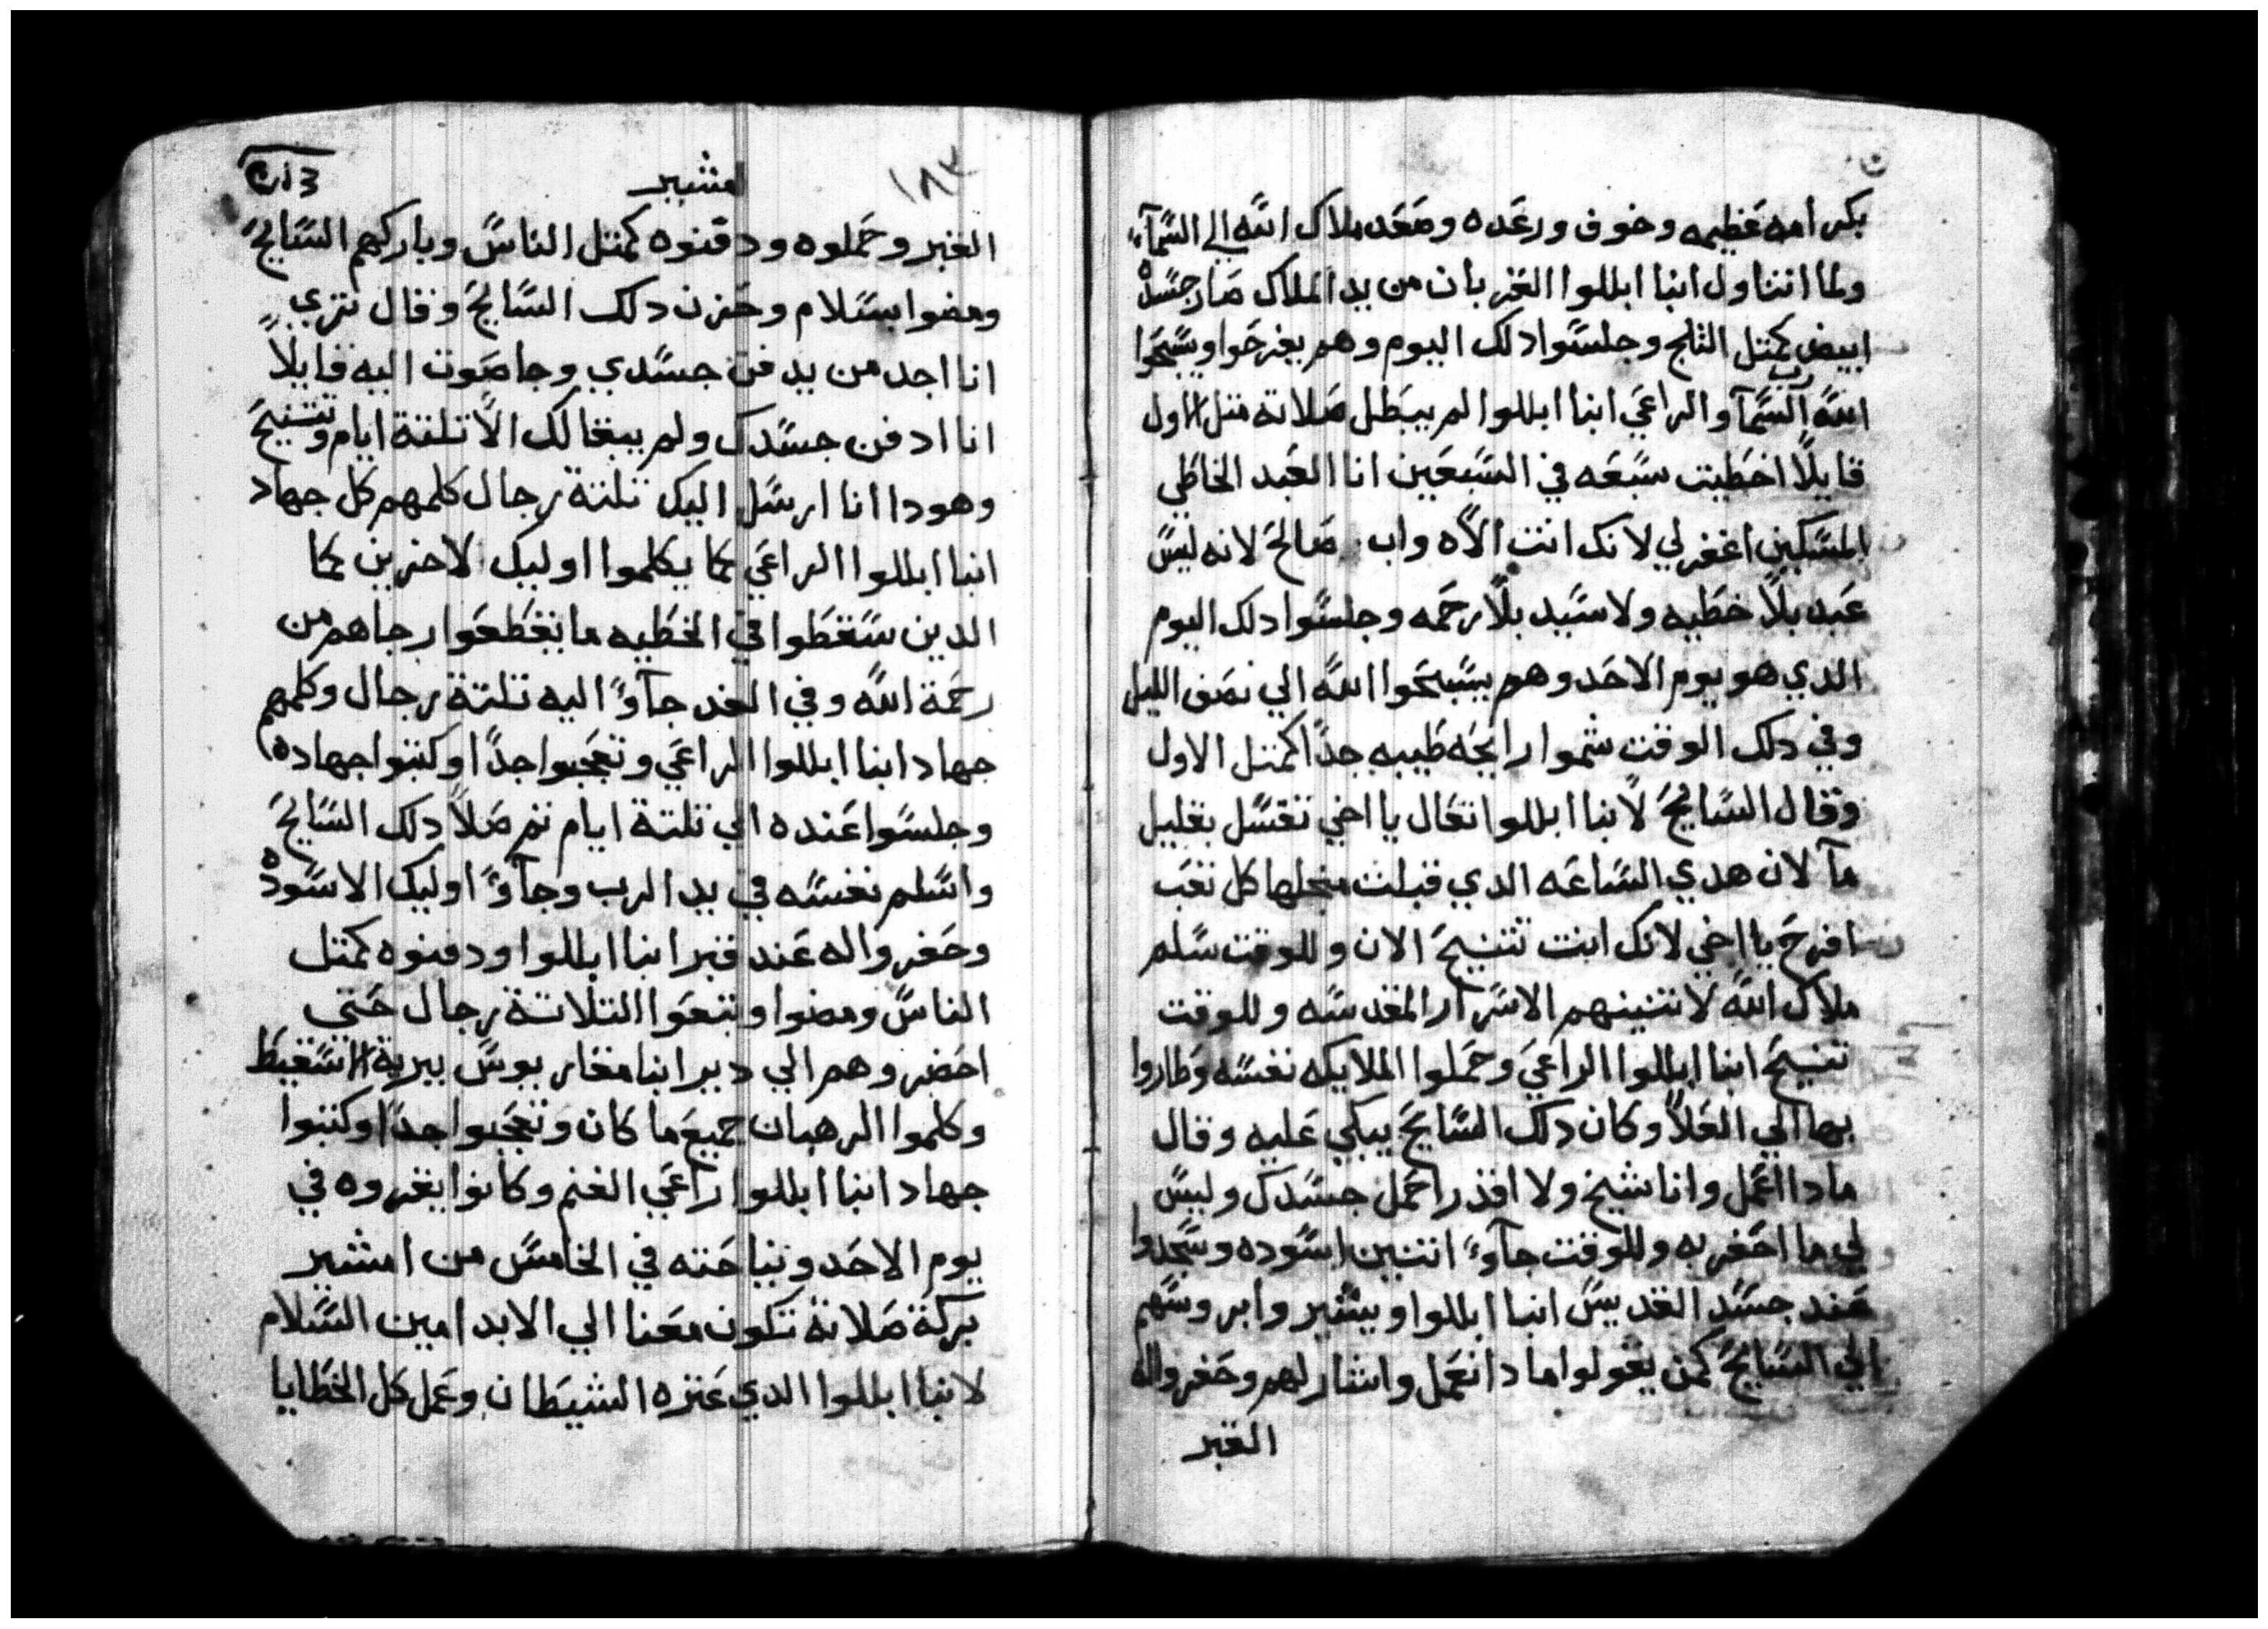 بكرامه عظيمه وخوف ورعده وصعد ملاك الله الي السمآء
ولما اتناول انبا ابللوا القربان من يد الملاك صار جسده
ابيض كمتل التلج وجلسوا دلك اليوم وهم يفرحوا ويسبحوا
الله رب السمآ والراعي انبا ابللوا لم يبطل صلاته متل الاول
قايلاً اخطيت سبعه في السبعين انا العبد الخاطي
المسكين اغفر لي لانك انت الاه واب صالح لانه ليس
عبد بلا خطيه ولا سيد بلا رحمه وجلسوا دلك اليوم
الدي هو يوم الاحد وهم يسبحوا الله الي نصف الليل
وفي دلك الوقت شموا رايحه طيبه جداً كمتل الاول
وقال السايح لانبا ابللوا تعال يا اخي تغسل بقليل
مآ لان هدي الساعه الدي قبلت منجلها كل تعب
افرح يا اخي لانك انت تتنيح الان وللوقت سلم
ملاك الله لاتنينهم الاسرار المقدسه وللوقت
تنيح انبا ابللوا الراعي وحملوا الملايكه نفسه وطاروا
بها الي العلا وكان دلك السايح يبكي عليه وقال
مادا اعمل وانا شيخ ولا اقدر احمل جسدك وليس
لي ما احفر به وللوقت جآوً اتنين اسوده وسجدوا
عند جسد القديس انبا ابللوا ويشيروا بروسهم
الي السايح كمن يقولوا مادا نعمل واشار لهم وحفروا له
القبر
امشير
١٨٣
القبر وحملوه ودفنوه كمتل الناس وباركهم السايح
ومضوا بسلام وحزن دلك السايح وقال تري
انا اجد من يدفن جسدي وجا صوت اليه قايلاً
انا ادفن جسدك ولم يبقا لك الا تلتة ايام وتتنيح
وهودا انا ارسل اليك تلتة رجال كلمهم كل جهاد
انبا ابللوا الراعي كما يكلموا اوليك الاخرين كما
الدين سقطوا في الخطيه ما يقطعوا رجاهم من
رحمة الله وفي الغد جآوً اليه تلتة رجال وكلمهم
جهاد انبا ابللوا الراعي وتعجبوا جداً وكتبوا جهاده
وجلسوا عنده الي تلتة ايام تم صلا دلك السايح
واسلم نفسه في يد الرب وجآوً اوليك الاسوده
وحفروا له عند قبر انبا ابللوا ودفنوه كمتل
الناس ومضوا وتبعوا التلاتة رجال حتي
احضروهم الي دير انبا مقاريوس ببرية الاسقيط
وكلموا الرهبان جميع ما كان وتعجبوا جداً وكتبوا
جهاد انبا ابللوا راعي الغنم وكانوا يقروه في
يوم الاحد ونياحته في الخامس من امشير
بركة صلاته تكون معنا الي الابد امين السلام
لانبا ابللوا الدي عتره الشيطان وعمل كل الخطايا